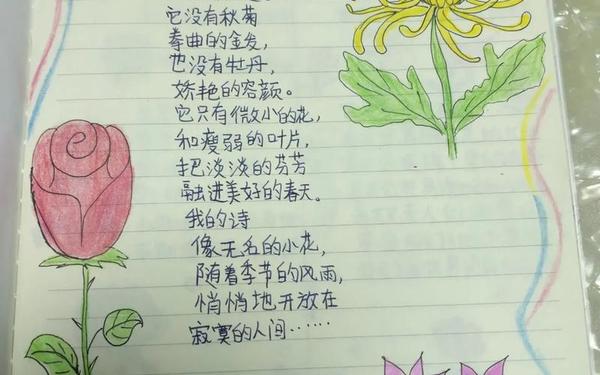 它没有秋菊
拳曲的金发,
也没有牡丹,
娇艳的容颜。
它只有微小的花,
和瘦弱的叶片,
把淡淡的芬芳
融进美好的春天。
我的诗
像无名的小花,
随着季节的风雨,
悄悄地开放在
寂寞的人间……